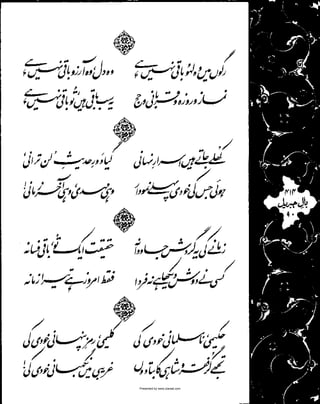 رگوں میں وہ لہو باقی نہیں ہے
وہ دل، وہ آرزو باقی نہیں ہے
نماز و روزہ و قربانی و حج
یہ سب باقی ہیں، تو باقی نہیں ہے
کھلے جاتے ہیں اسرار نہانی
گیا دور حدیث لن ترانی
ہوئی جس کی خودی پہلے نمودار
وہی مہدی، وہی آخر زمانی
زمانے کی یہ گردش جاودانہ
حقیقت ایک تو، باقی فسانہ
کسی نے دوش دیکھا ہے نہ فردا
فقط امروز ہے تیرا زمانہ
حکیمی، نامسلمانی خودی کی
کلیمی، رمز پنہانی خودی کی
تجھے گر فقر و شاہی کا بتا دوں
غریبی میں نگہبانی خودی کی
۴۱۳
بال جبریل
۹۰